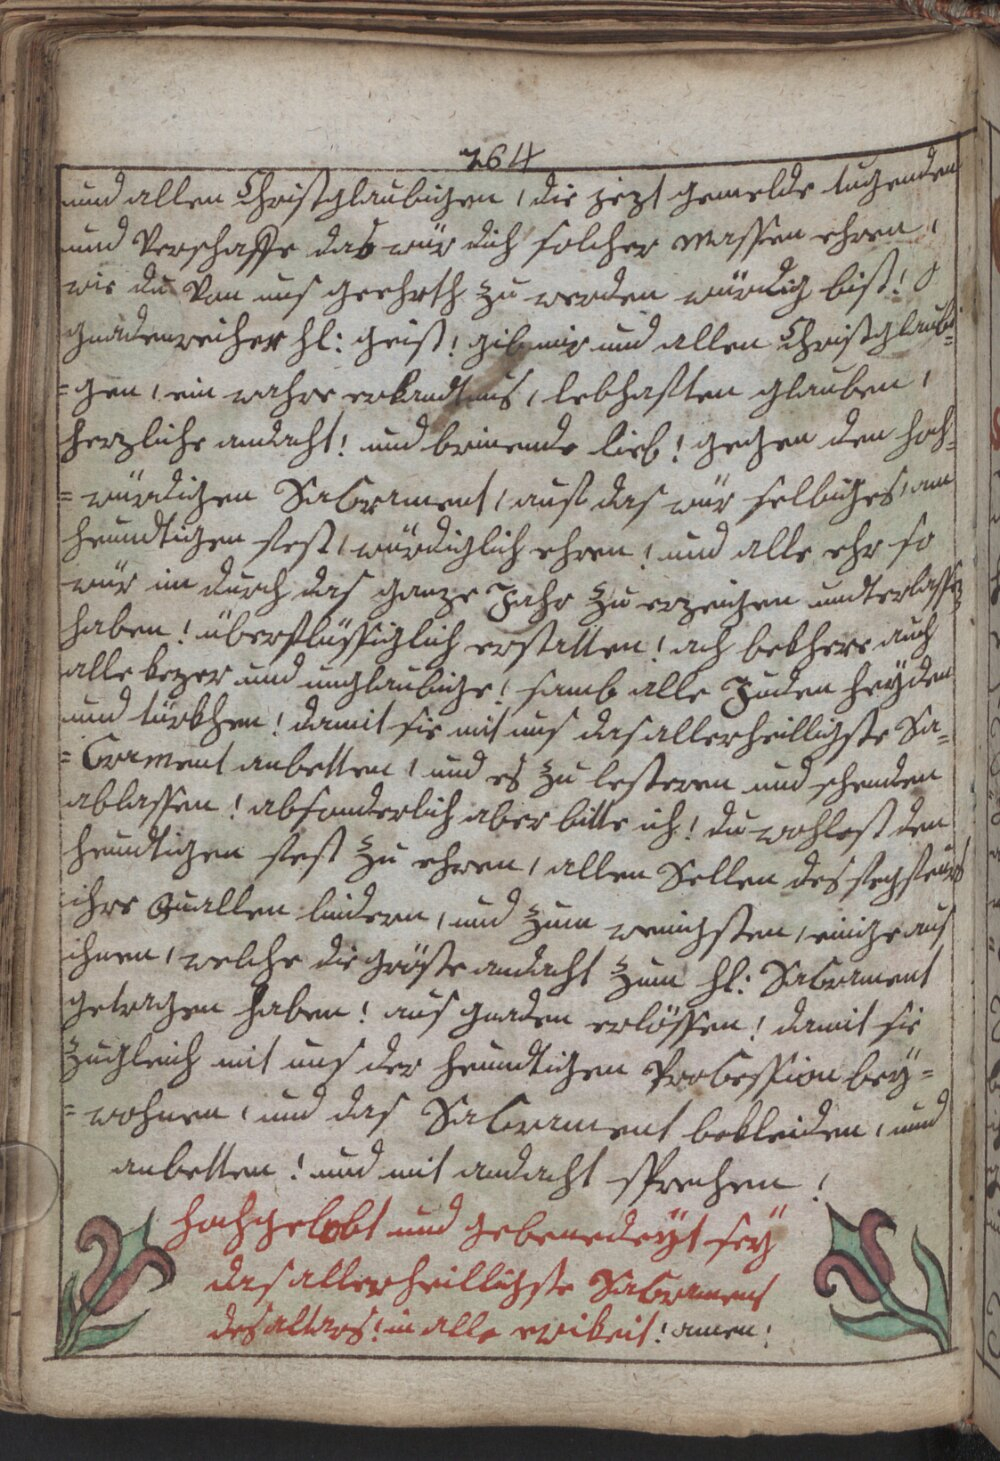 264
und allen Christglaubigen, die jezt gemelde tugenden
und Verschaffe das wür dich solcher massen ehren,
wie du Von uns geehrth zu werden würdig bist! O
gnadenreicher hl: geist! gib mir und allen Christglaubi=
=gen, ein wahre erkandtnus, lebhafften glauben,
herzliche andacht! und brinende lieb! gegen den hoch=
=würdigen Sacrament, auf das wür selbiges, am
heundtigen fest, würdiglich ehren! und alle ehr so
wür im durch das ganze Jahr zu erzeigen undterlassen
haben! überflüssiglich erstatten! ach bekhere auch
alle kezer und unglaubige! samb alle Juden heyden
und türkhen! damit sie mit uns das allerheilligste Sa=
=Crament anbetten! und es zu lesteren und schenden
ablassen! absonderlich aber bitte ich! du wohlest den
heundtigen fest zu ehren, allen Sellen des fegfeürs
ihre Quallen lindern, und zum wenigsten, einige aus
ihnen, welche die gröste andacht zum hl: Sacrament
getragen haben! aus gnaden erlössen! damit sie
zugleich mit uns der heundtigen Procession bey=
=wohnen, und das Sacrament bekleiden, und
anbetten! und mit andacht sprechen!
hochgelobt und gebenedeyt sey
das allerheilligste Sacrament
des altars! in alle ewikeit! amen!